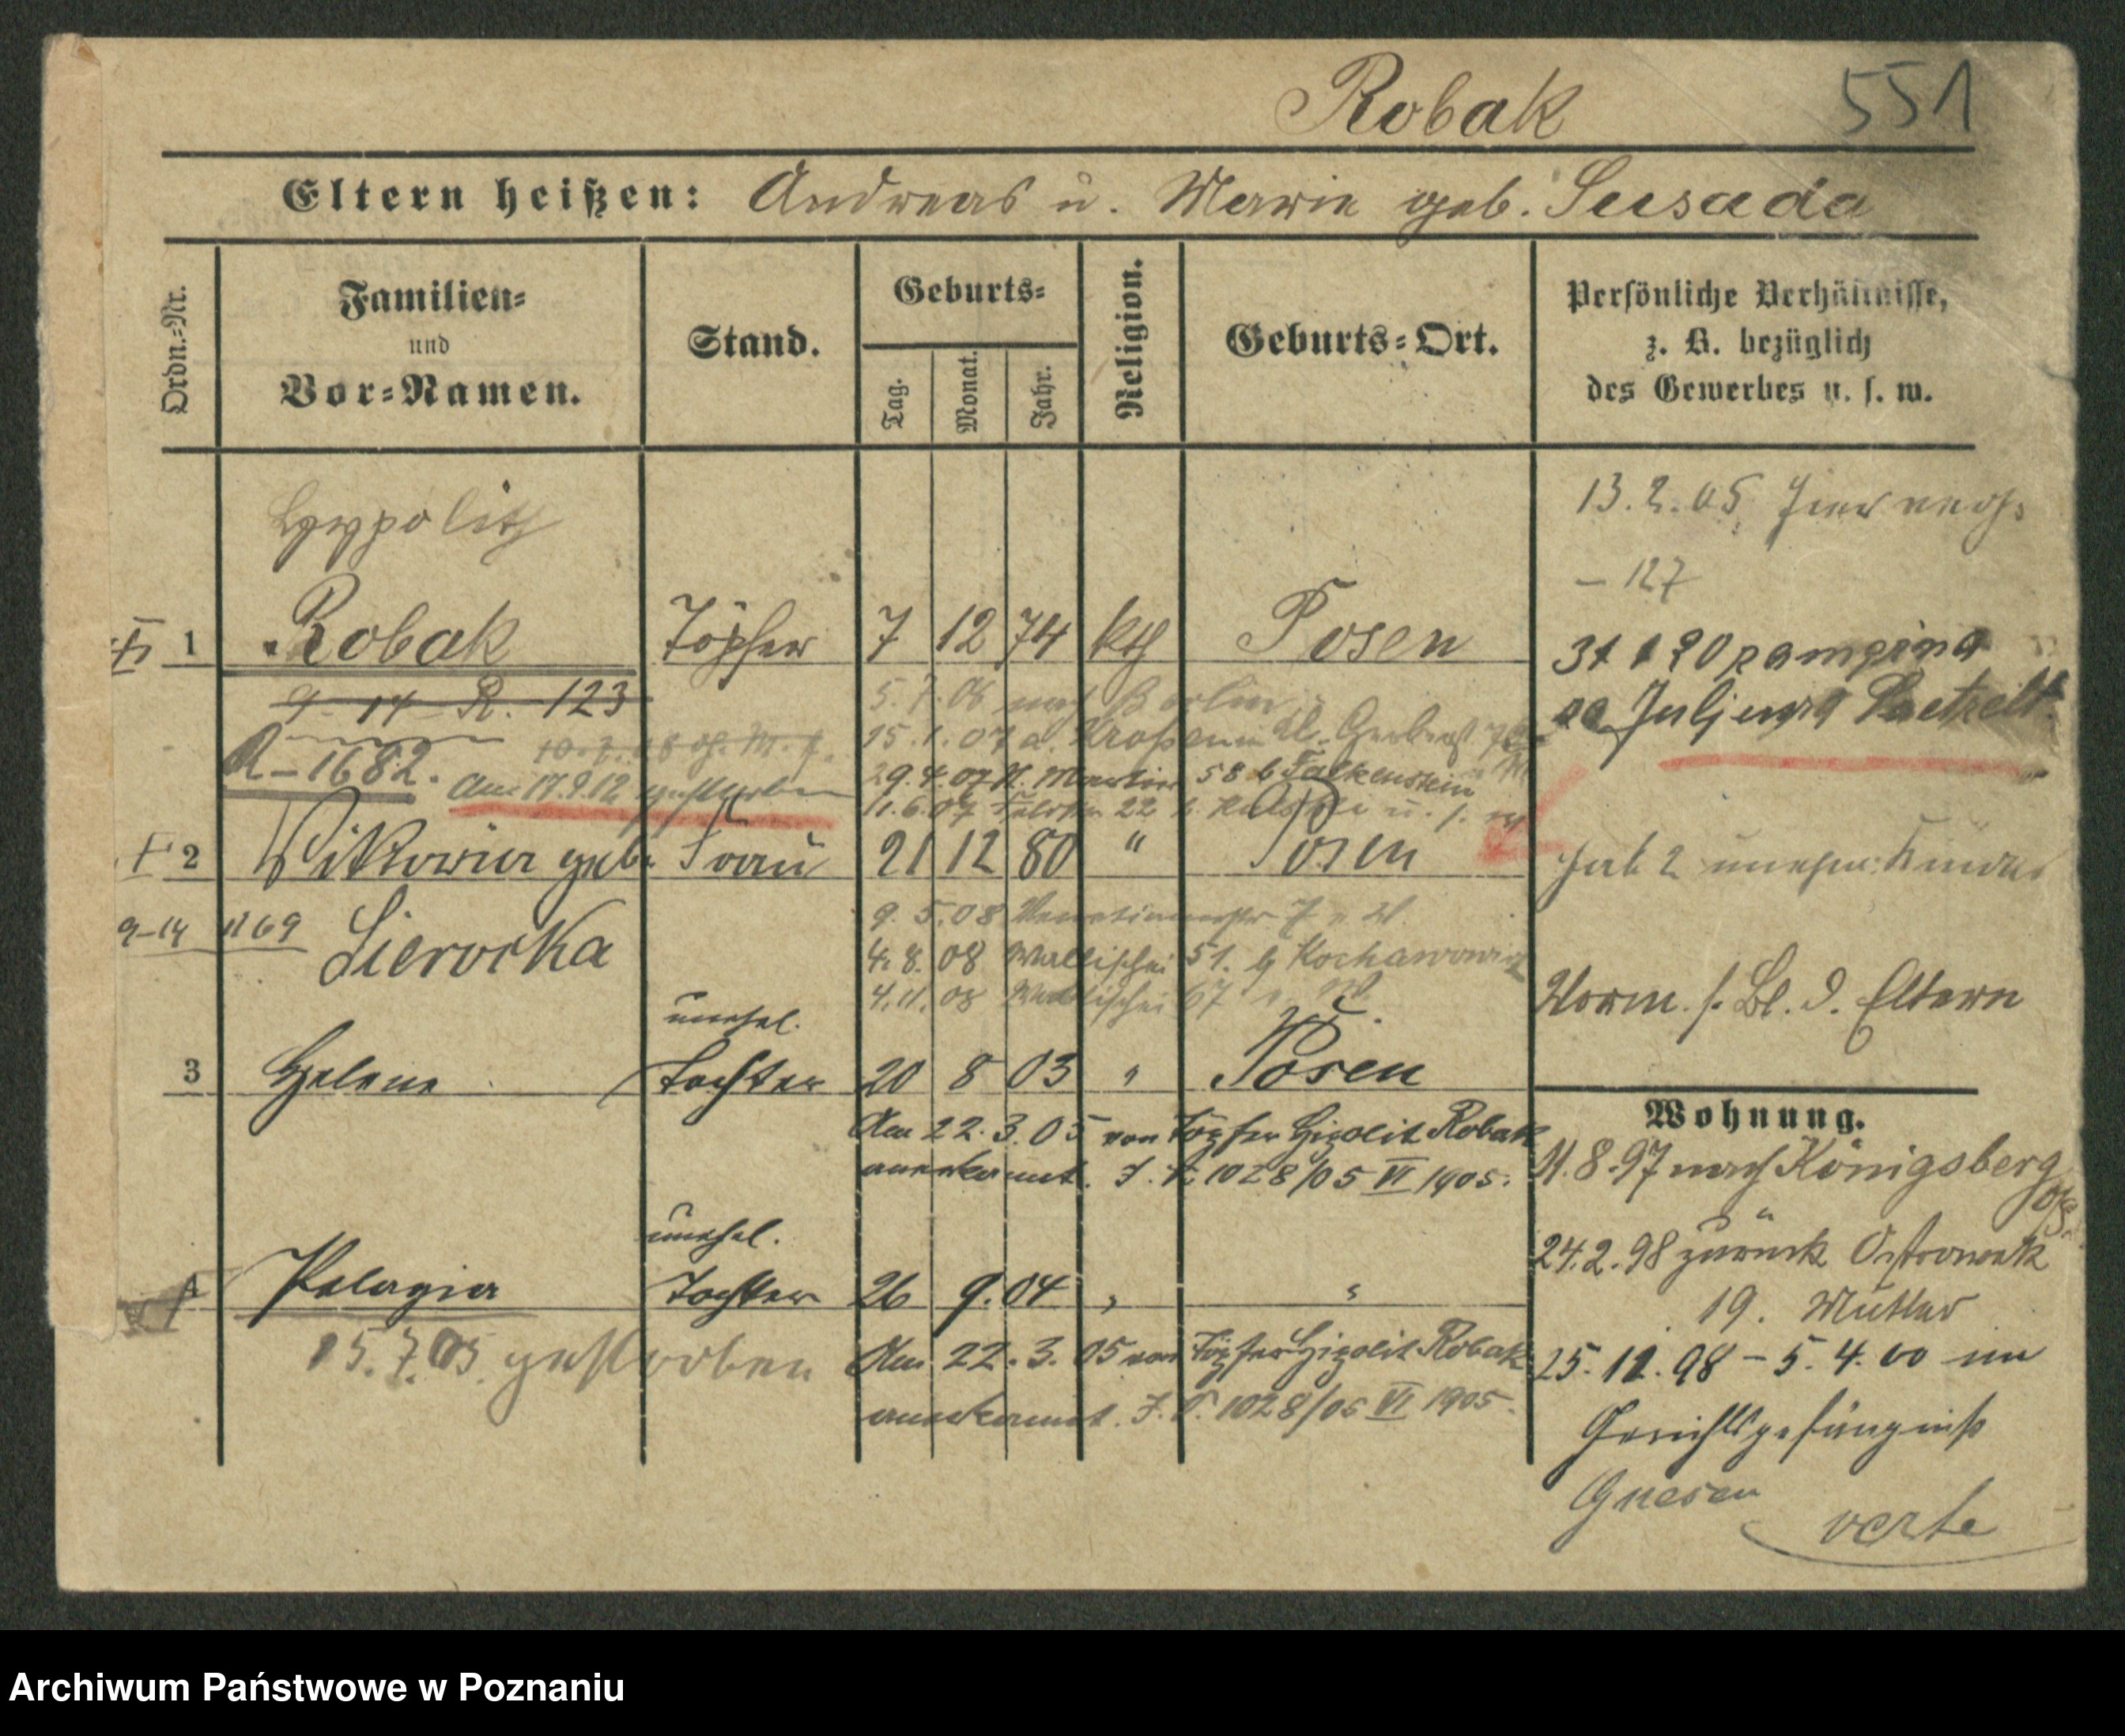 Robak 551
Eltern heißen: Andreas u. Marie geb. Susada
Ordn.=Nr.
Familien=
und
Vor=Namen.
Stand.
Geburts=
Tag.
Monat.
Jahr.
Religion.
Geburts=Ort.
Persönliche Verhältnisse,
z. B. bezüglich
des Gewerbes u. s. w.
Hyppolith
13.2.05 hier
- 127
1 Robak Töpfer 7 12 74 kth Posen
9-14 R. 123
R-1682.
Am 17.9.12 gestorben
5.7.06 nach Berlin
15.1.07 a. Krossen
29.4.07 St. Martin 58 b Falkenstein
11.6.07 22
2 Witkowia geb. Frau 21 12 80 " Posen
Sierocka
9-14 1169
hat 2 unehel. Kinder
9.5.08 7 v. W.
4.8.08 Wallischei 51. b Kochanowicz
4.11.08 Wallischei 67
Vorm. s. Bl. d. Eltern
3 Helene unehel.
Tochter 20 8 03 " Posen
Am 22.3.05 von Töpfer Hipolit Robak
anerkannt. J. N. 1028/05 VI 1905.
4 Pelagia unehel.
Tochter 26 9. 04 " "
15.7.05. gestorben
Am 22.3.05 von Töpfer Hipolit Robak
anerkannt. J. N. 1028/05 VI 1905.
Wohnung.
11.8.97 nach Königsberg
24.2.98 zurück Ostrowek
19. Mutter
25.12.98 - 5.4.00 im
Gerichtsgefängniß
Gnesen
verte
Archiwum Państwowe w Poznaniu